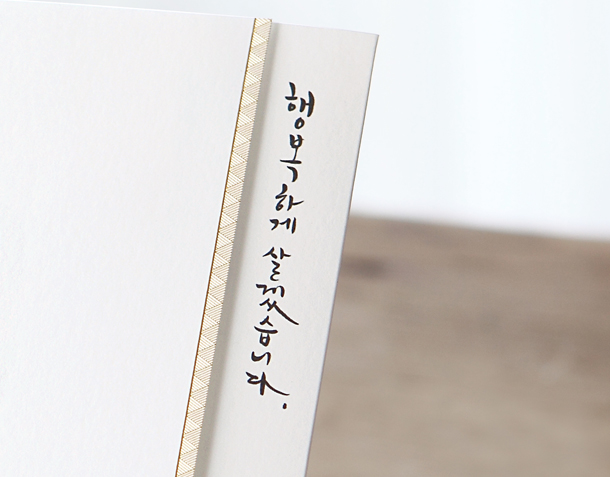 행복하게 살겠습니다.